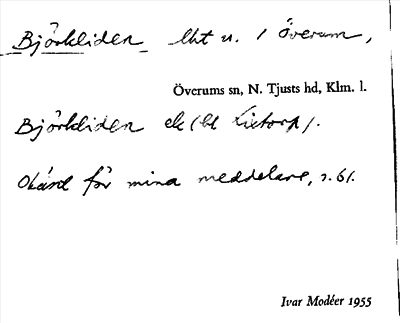 Björkliden lht u. / Överum,
Överums sn, N. Tjusts hd, Klm. l.
Björkliden ek (bl Lietorp).
Okänt för mina meddelare, s. 61.
Ivar Modéer 1955